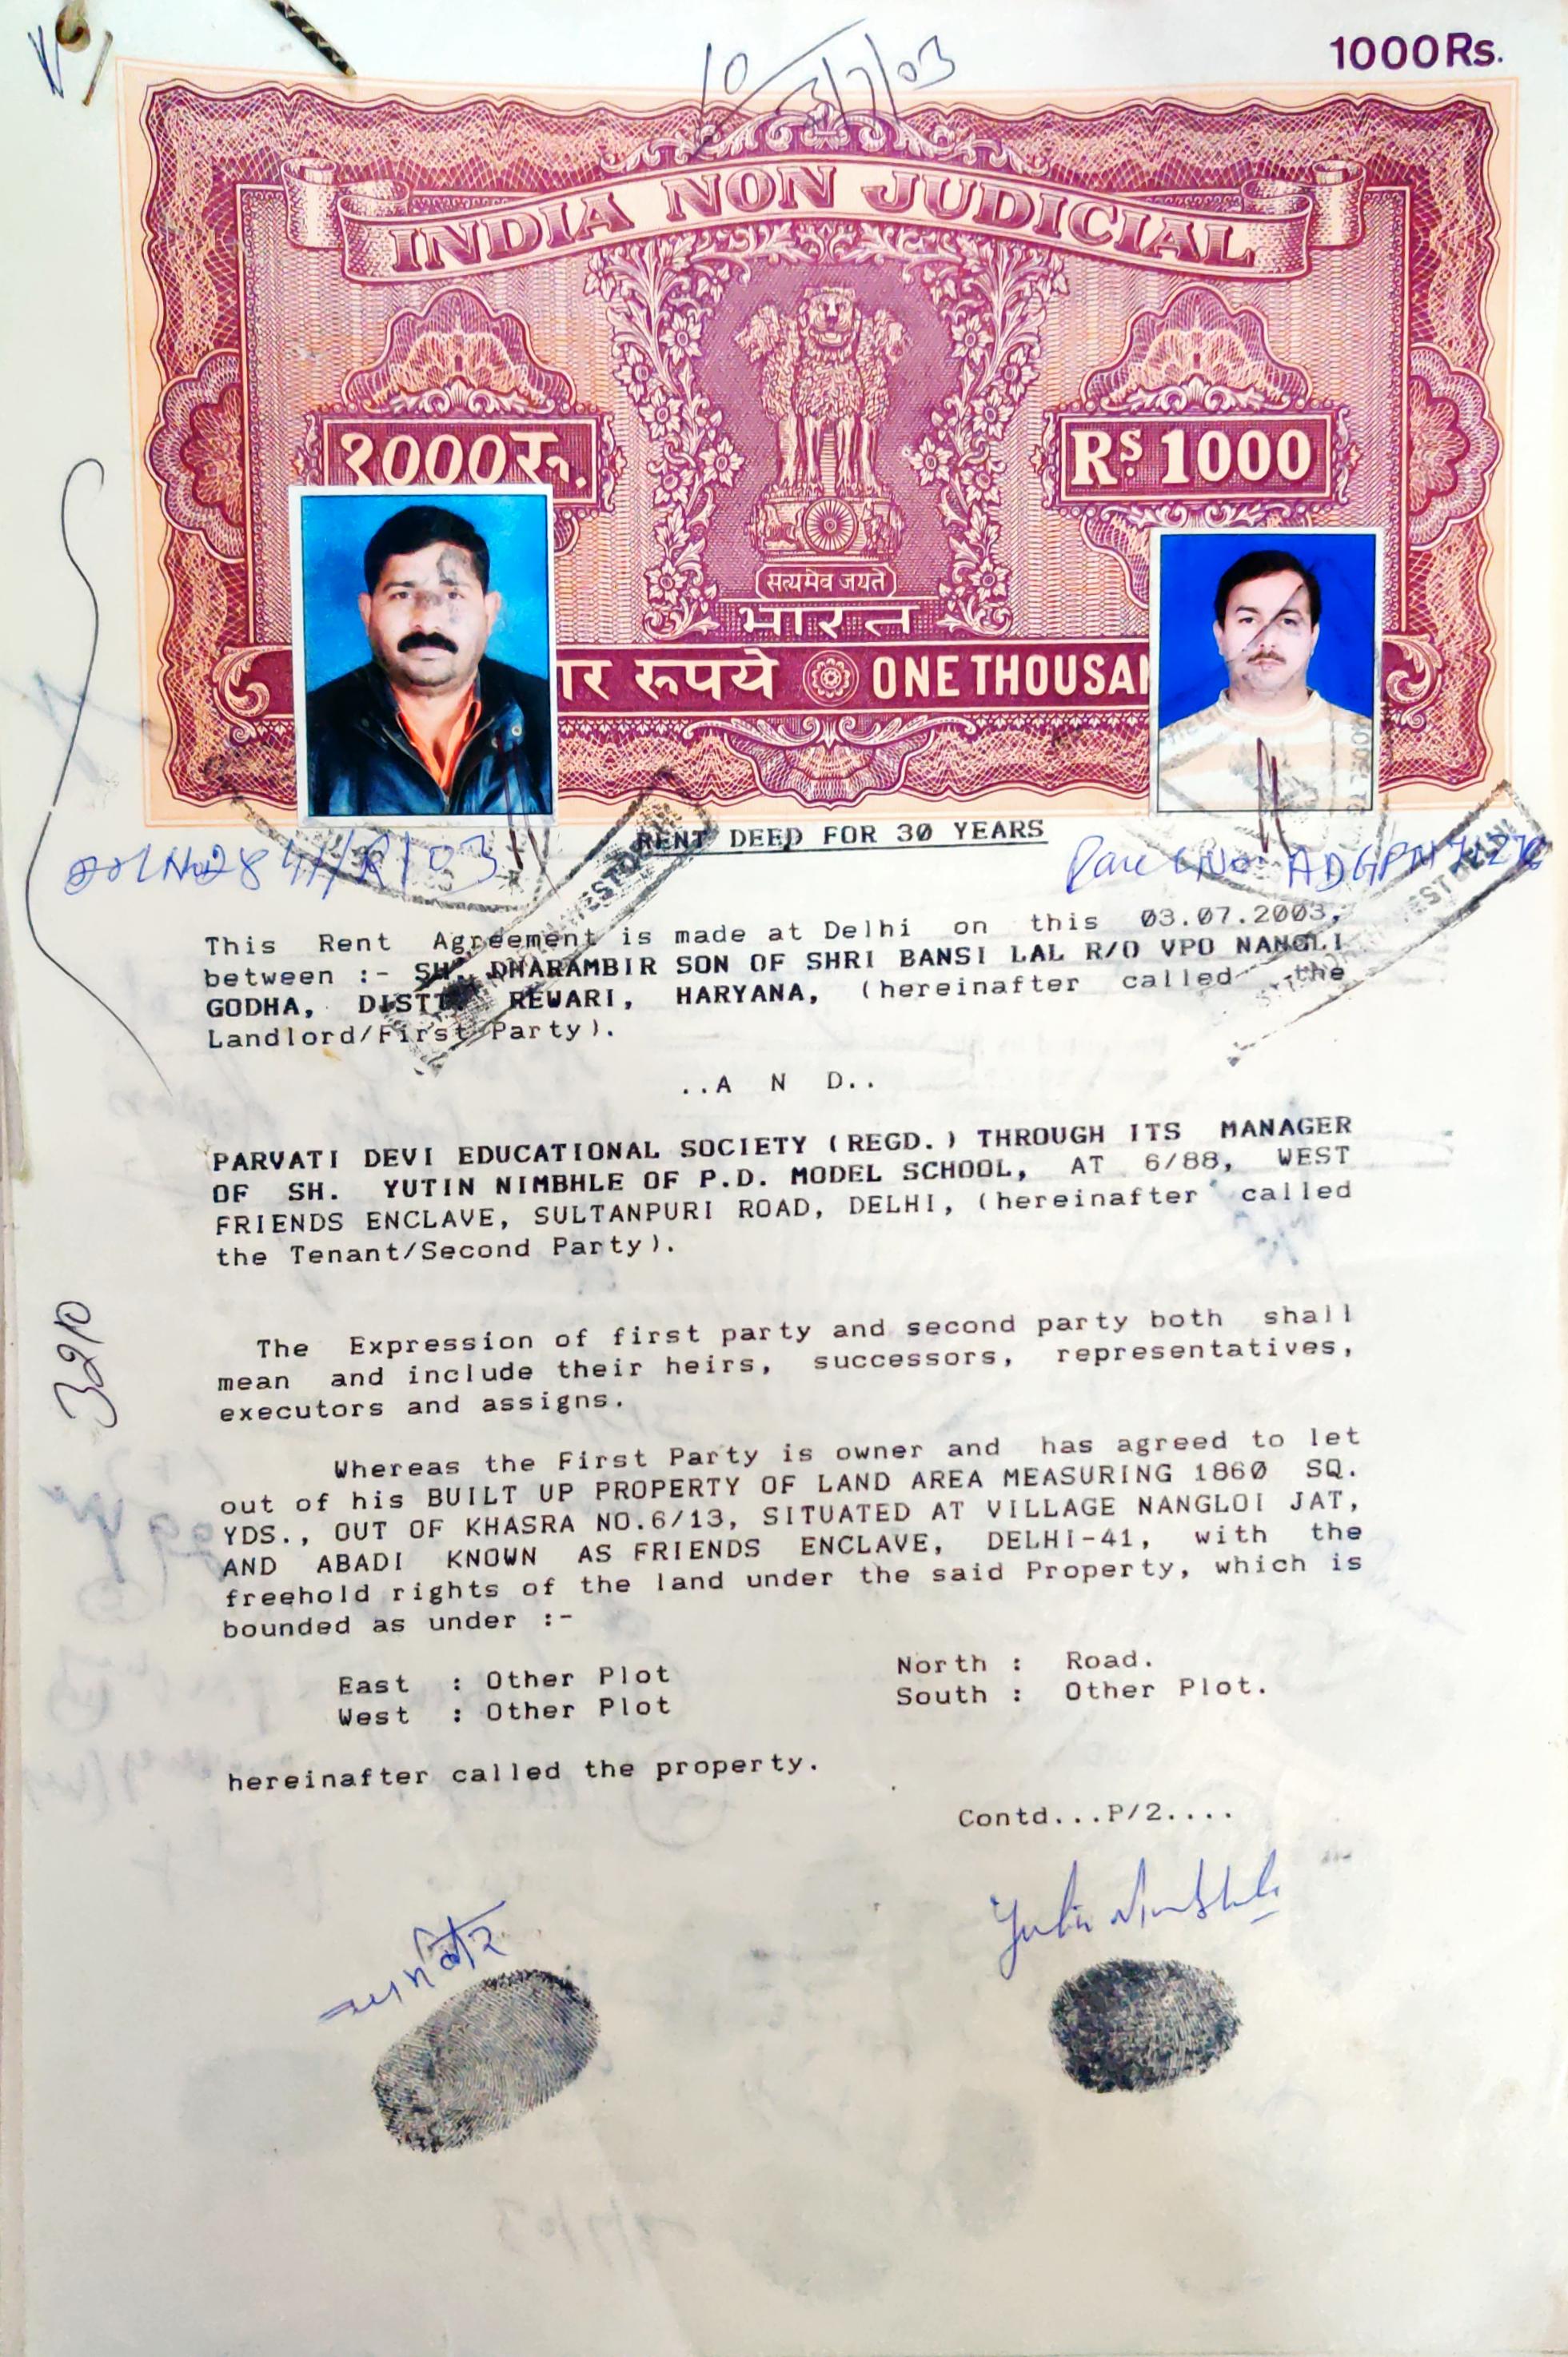 1000Rs.
INDIA NON JUDICIAL
१000रु.
Rs. 1000
सत्यमेव जयते
भारत
रुपये ONE THOUSAN
RENT DEED FOR 30 YEARS
This Rent Agreement is made at Delhi on this 03.07.2003,
between :- SH. DHARAMBIR SON OF SHRI BANSI LAL R/O VPO NANGLI
GODHA, DISTT. REWARI, HARYANA, (hereinafter called the
Landlord/First Party).
..A N D..
PARVATI DEVI EDUCATIONAL SOCIETY (REGD.) THROUGH ITS MANAGER
OF SH. YUTIN NIMBHLE OF P.D. MODEL SCHOOL, AT 6/88, WEST
FRIENDS ENCLAVE, SULTANPURI ROAD, DELHI, (hereinafter called
the Tenant/Second Party).
3210
The Expression of first party and second party both shall
mean and include their heirs, successors, representatives,
executors and assigns.
Whereas the First Party is owner and has agreed to let
out of his BUILT UP PROPERTY OF LAND AREA MEASURING 1860 SQ.
YDS., OUT OF KHASRA NO.6/13, SITUATED AT VILLAGE NANGLOI JAT,
AND ABADI KNOWN AS FRIENDS ENCLAVE, DELHI-41, with the
freehold rights of the land under the said Property, which is
bounded as under :-
East : Other Plot North : Road.
West : Other Plot South : Other Plot.
hereinafter called the property.
Contd...P/2....
Yutin Nimbhle